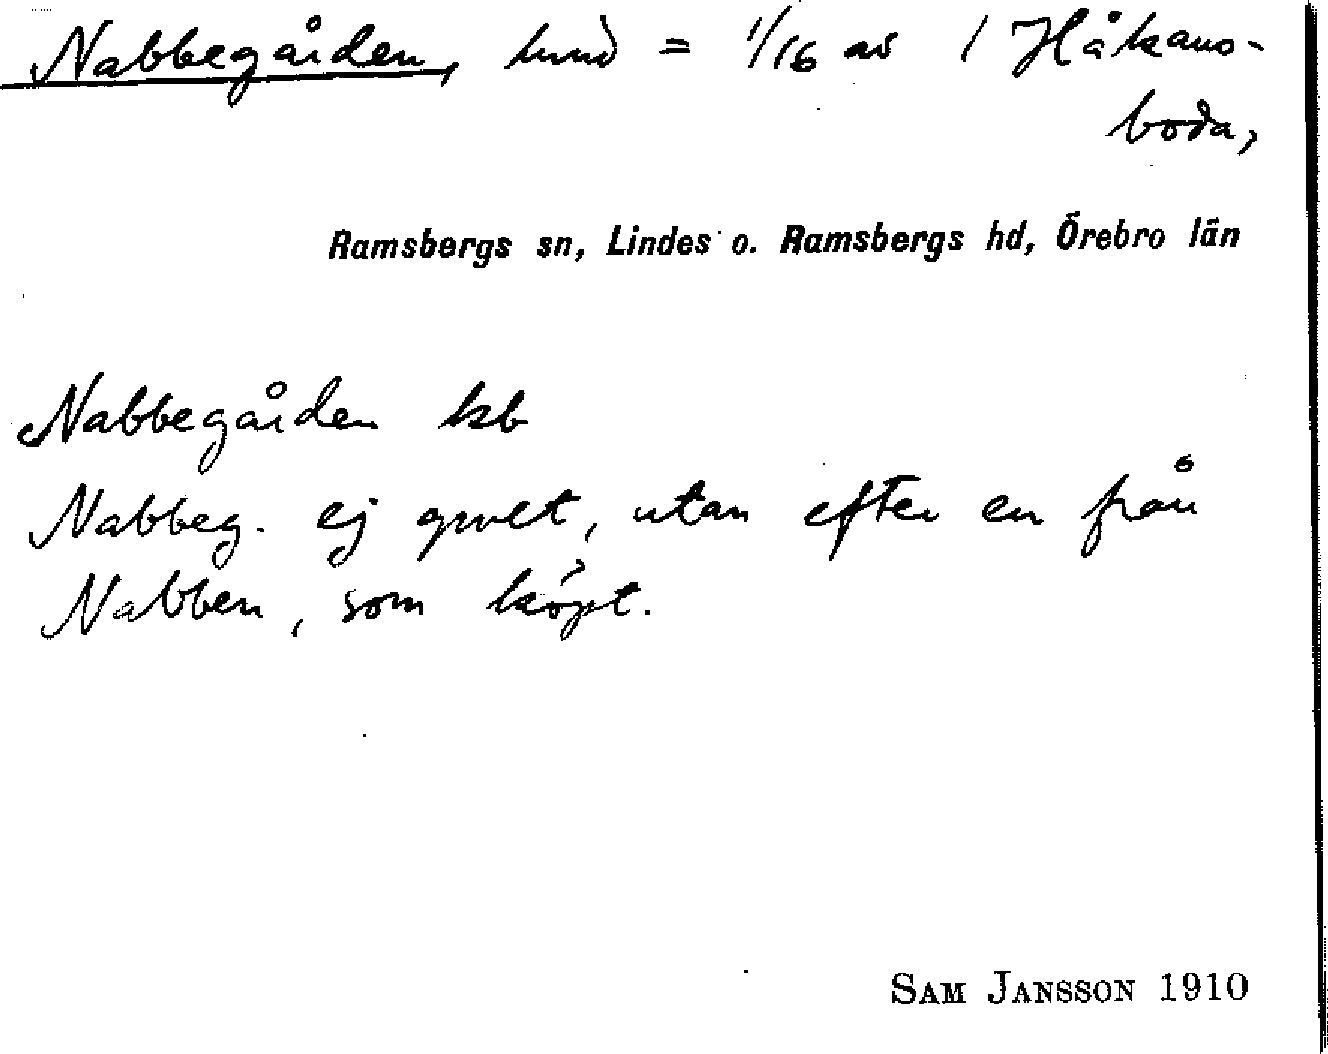 Nabbegården, hmd = 1/16 av 1 Håkans-
boda,
Ramsbergs sn, Lindes o. Ramsbergs hd, Örebro län
Nabbegården kb
Nabbeg. ej gmlt, utan efter en från
Nabben, som köpt.
SAM JANSSON 1910